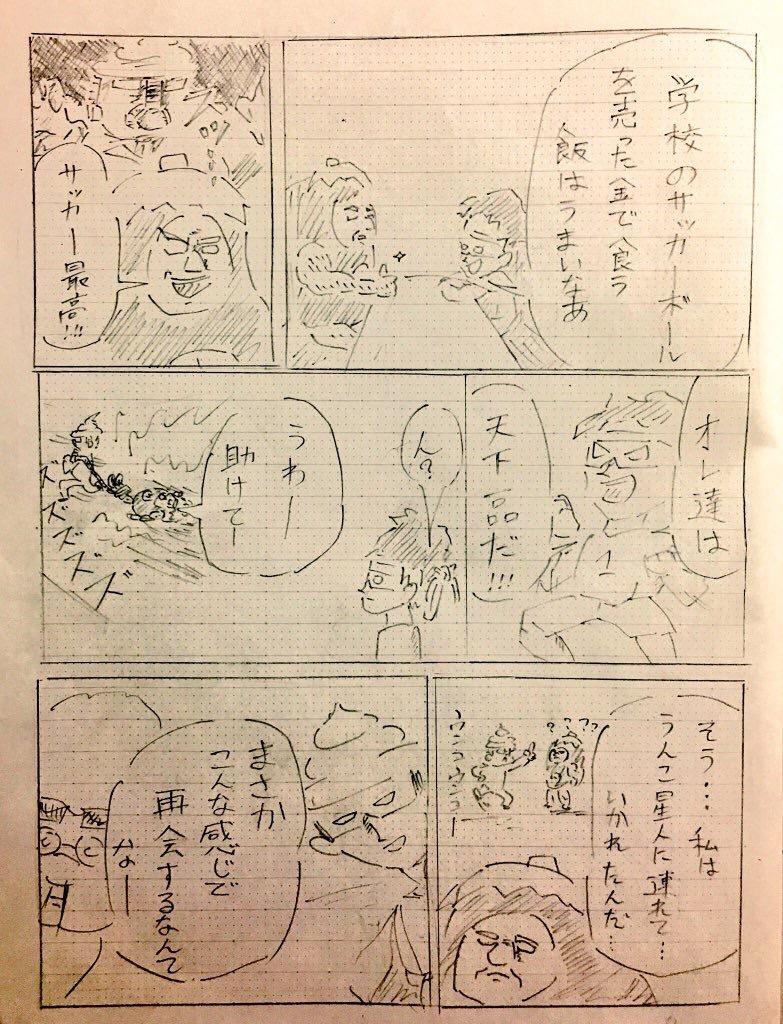 学校のサッカーボール
を売った金で食う
飯はうまいなあ
サッカー最高!!!
オレ達は
天下一品だ!!!
ん?
うわー
助けてー
ズズズズズ
そう…私は
うんこ星人に連れて…
いかれたんだ…
????
ウンコウンコー
まさか
こんな感じで
再会するなんて
なー